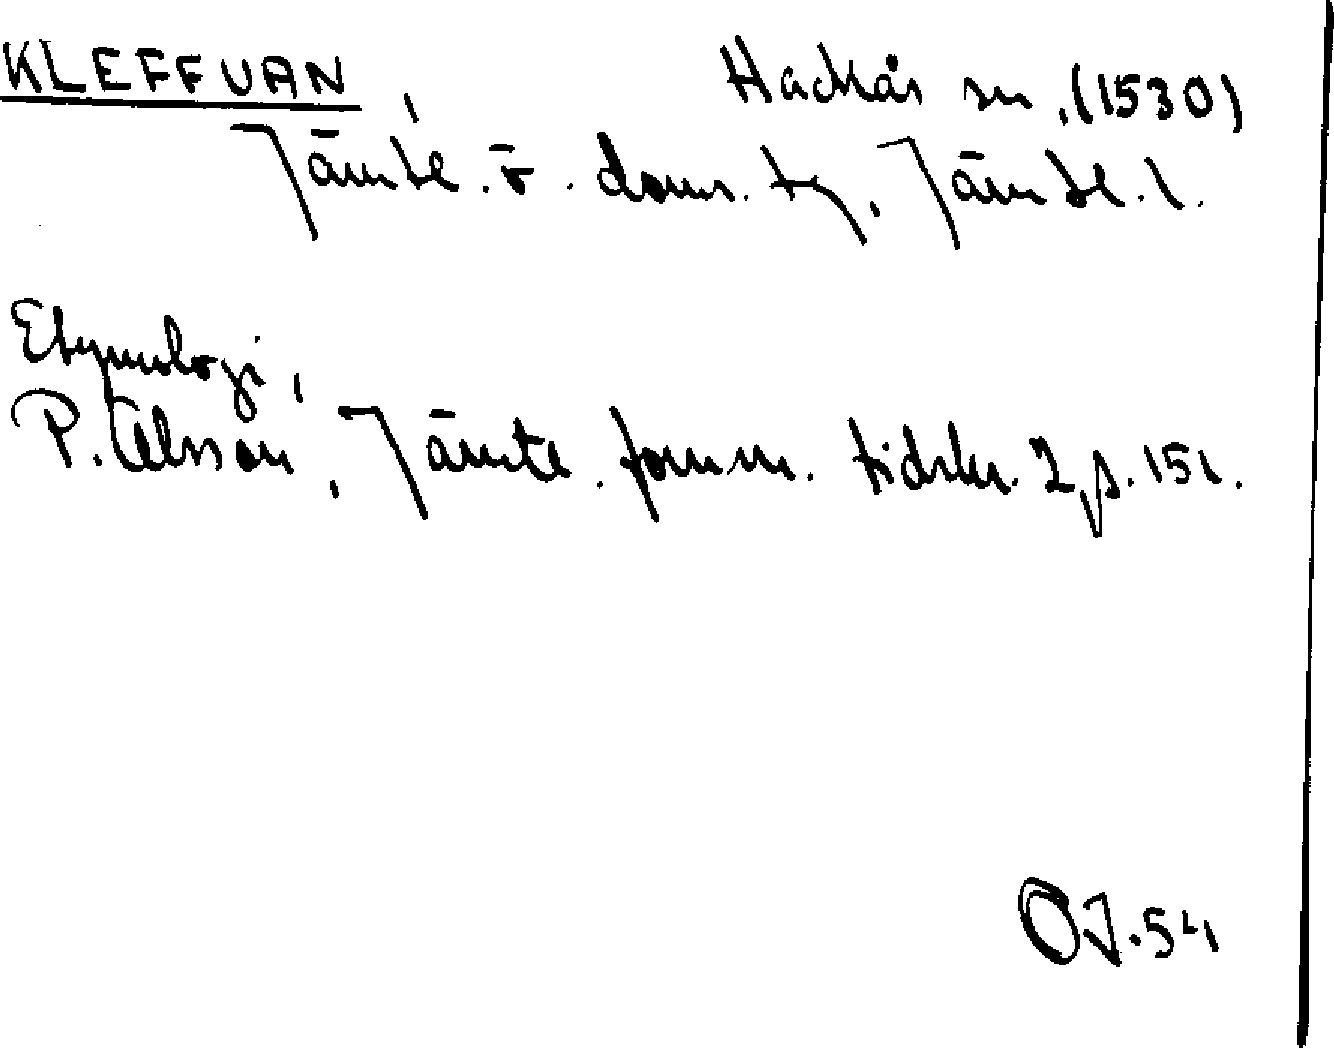 KLEFFUAN, Hackås sn, (1530)
Jämtl. ö. doms. tg, Jämtl. l.
Etymologi,
P. Olsson, Jämtl. fornm. tidskr. 2, s. 151.
OJ.54